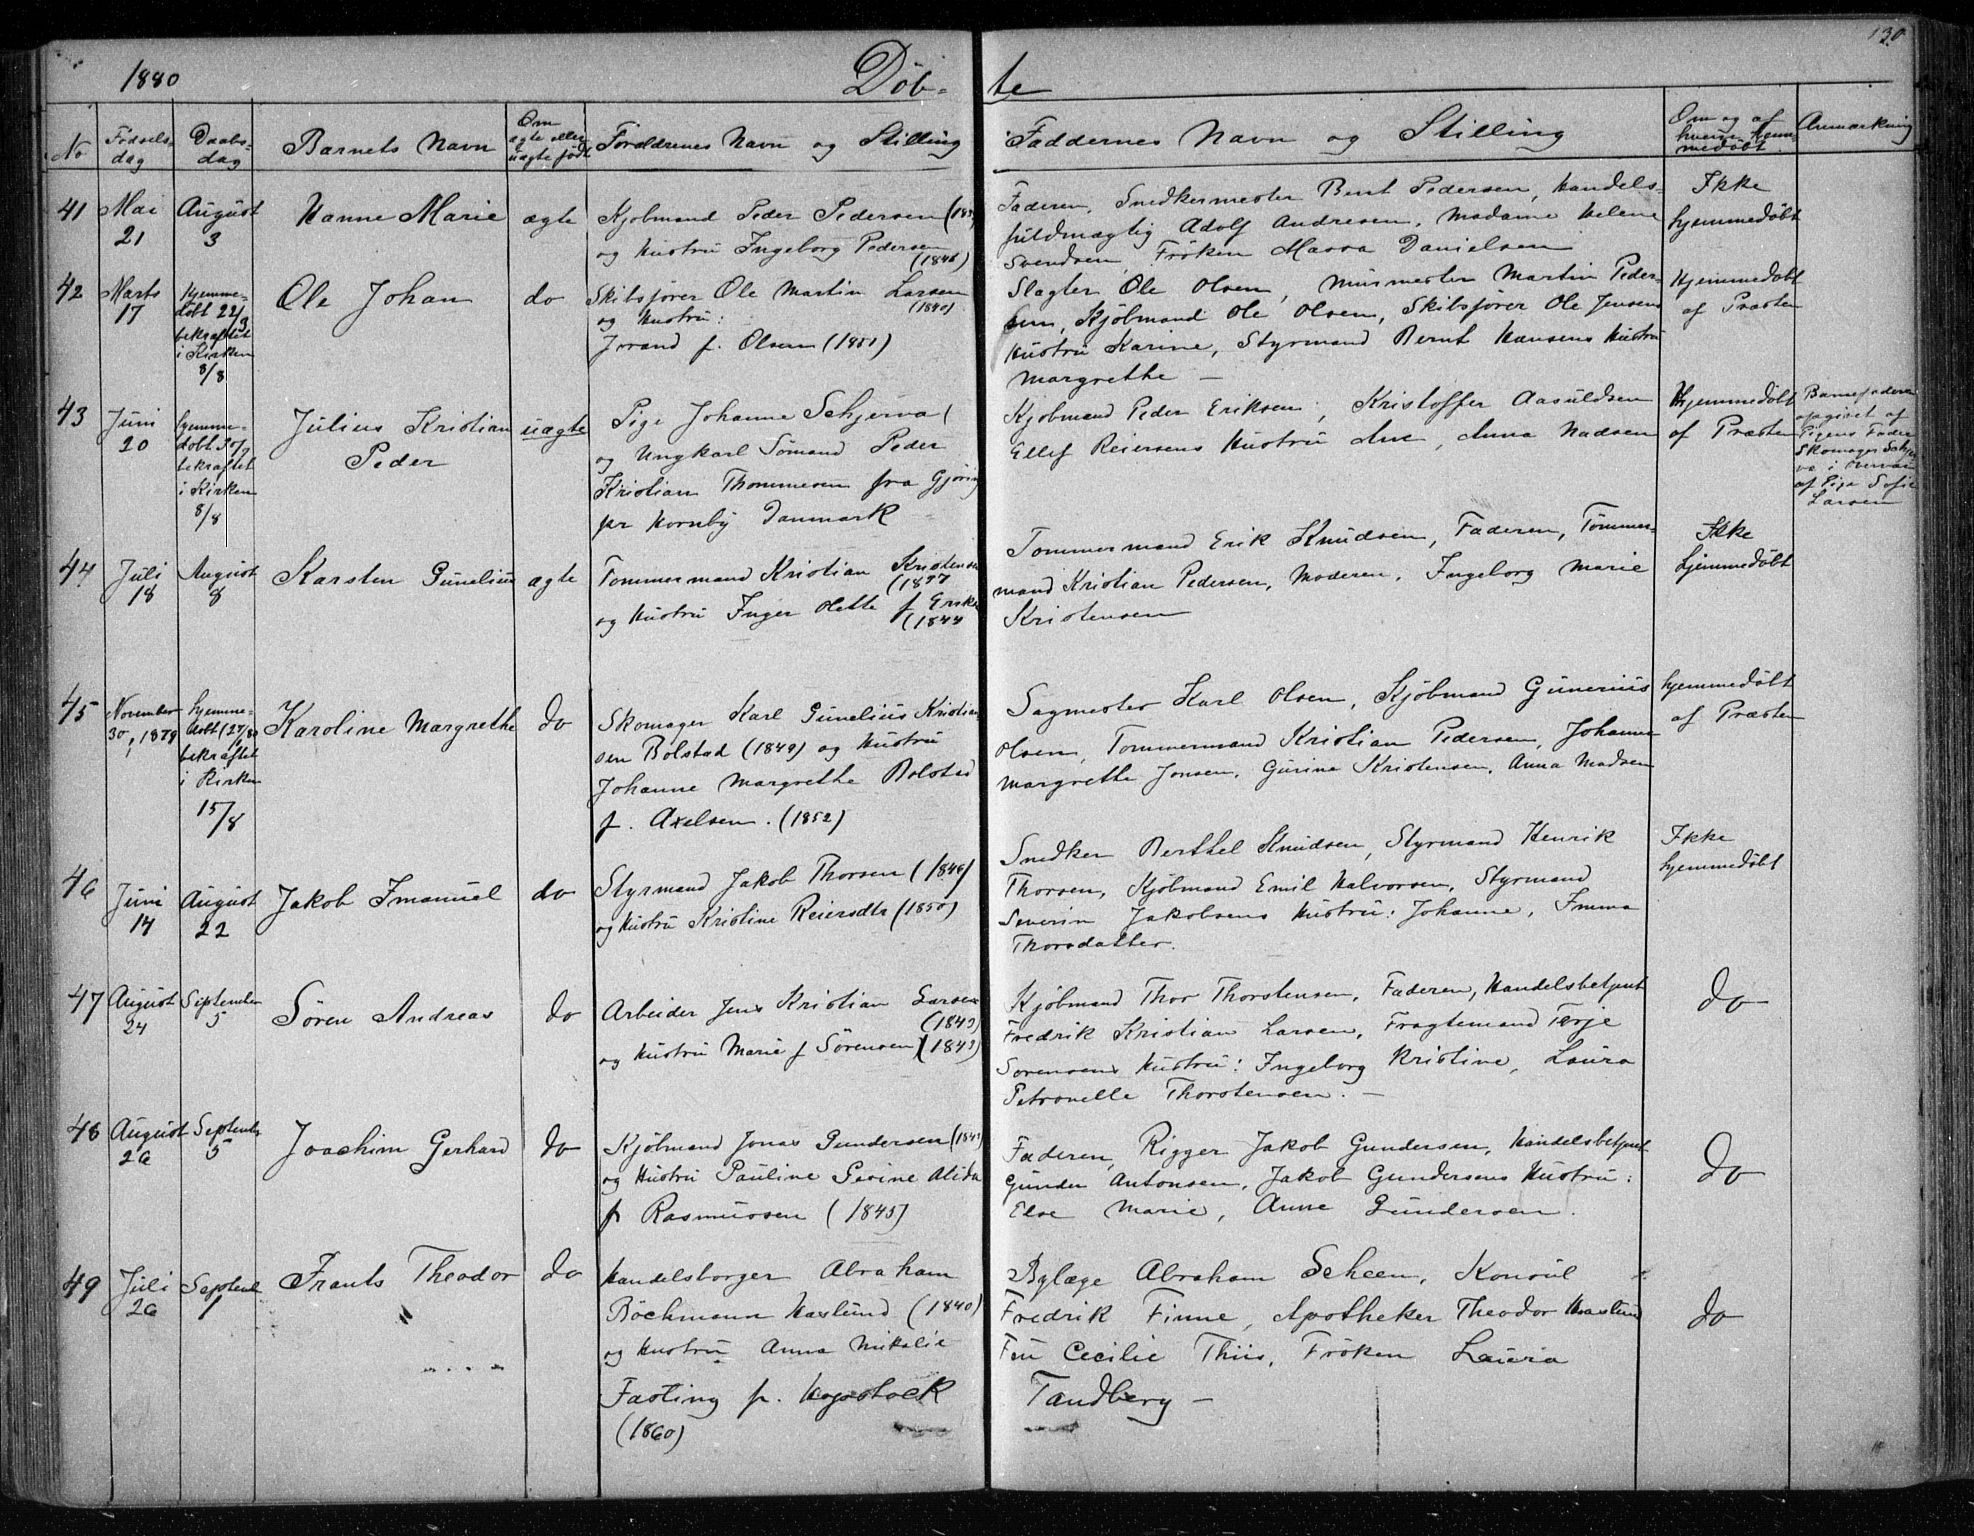 130
1880
Döb-
te
No
Födsels-
dag
Daabs-
dag
Barnets Navn
Om
ægte eller
uægte født
Forældrenes Navn og Stilling
Faddernes Navn og Stilling
Om og af
hvem hjem-
medöbt.
Anmærkning
41
Mai
21
August
3
Hanne Marie
ægte
Kjöbmand Peder Pedersen
og Hustru Ingeborg Pedersen
(1846)
Faderen, Snedkermester Bent Pedersen, Handels-
fuldmægtig Adolf Andresen, Madame Helene
Svendsen, Fröken Massa Danielsen
Ikke
hjemmedöbt
42
Marts
17
Hjemme-
döbt 22/3
bekræftet
i Kirken
8/8
Ole Johan
do
Skibsförer Ole Martin Larsen
(1840)
og Hustru:
Jorand f. Olsen (1851)
Slagter Ole Olsen, Murmester Martin Peder-
sen, Kjöbmand Ole Olsen, Skibsförer Ole Jensens
Hustru Karine, Styrmand Bernt Hansens Hustru
Margrethe —
Hjemmedöbt
af Præsten
43
Juni
20
hjemme-
döbt 30/7
bekræftet
i Kirken
8/8
Julius Kristian
Peder
uægte
Pige Johanne Schjerva (
og Ungkarl Sömand Peder
Kristian Thommesen fra Gjöring
pr Hornby Danmark
Kjöbmand Peder Eriksen, Kristoffer Aasuldsen
Ellef Reiersens Hustru Ane, Anna Madsen
Hjemmedöbt
af Præsten
Barnefaderen
opgivet af
Pigens Fader
Skomager Schjer
va i
af Pige Sofie
Larsen
44
Juli
18
August
8
Karsten Gunelius
ægte
Tömmermand Kristian Kristensen
(1857
og Hustru Inger Olette f Eriks
(1844
Tömmermand Erik Knudsen, Faderen, Tömmer-
mand Kristian Pedersen, Moderen, Ingeborg Marie
Kristensen
Ikke
hjemmedöbt
45
November
30, 1879
hjemme-
döbt (27/80
bekræftet
i Kirken
15/8
Karoline Margrethe
do
Skomager Karl Gunelius Kristian
sen Bolstad (1849) og Hustru
Johanne Margrethe Bolstad
f. Axelsen. (1852)
Sagmester Karl Olsen, Kjöbmand Gunerius
Olsen, Tömmermand Kristian Pedersen, Johanne
Margrethe Jonsen, Gurine Kristensen, Anna Madsen
hjemmedöbt
af Præsten
46
Juni
14
August
22
Jakob Imanuel
do
Styrmand Jakob Thorsen (1846)
og Hustru Kristine Reiersdtr (1850)
Snedker Berthel Knudsen, Styrmand Henrik
Thorsen, Kjöbmand Emil Halvorsen, Styrmand
Severin Jakobsens Hustru: Johanne, Emma
Thorsdatter.
Ikke
hjemmedöbt
47
August
24
September
5
Sören Andreas
do
Arbeider Jens Kristian Larsen
(1843)
og Hustru Marie f Sörensen (1843)
Kjöbmand Thor Thorstensen, Faderen, Handelsbetjent
Fredrik Kristian Larsen, Fragtemand Terje
Sörensens Hustru: Ingeborg Kristine, Laura
Petronelle Thorstensen. —
do
48
August
26
September
5
Joachim Gerhard
do
Kjöbmand Jonas Gundersen
og Hustru Pauline Severine Alida
f Rasmussen (1845)
Faderen, Rigger Jakob Gundersen, Handelsbetjent
Gunder Antonsen, Jakob Gundersens Hustru:
Else Marie, Anne Gundersen.
do
49
Juli
26
September
1
Frants Theodor
do
Handelsborger Abraham
Böckmann Haslund (1840)
og Hustru Anna Mikalie
Fasting f.
(1860)
Bylæge Abraham Scheen, Konsul
Fredrik Finne, Apotheker Theodor Haslund
Fru Cecilie Thiis, Fröken Laura
Tandberg —
do